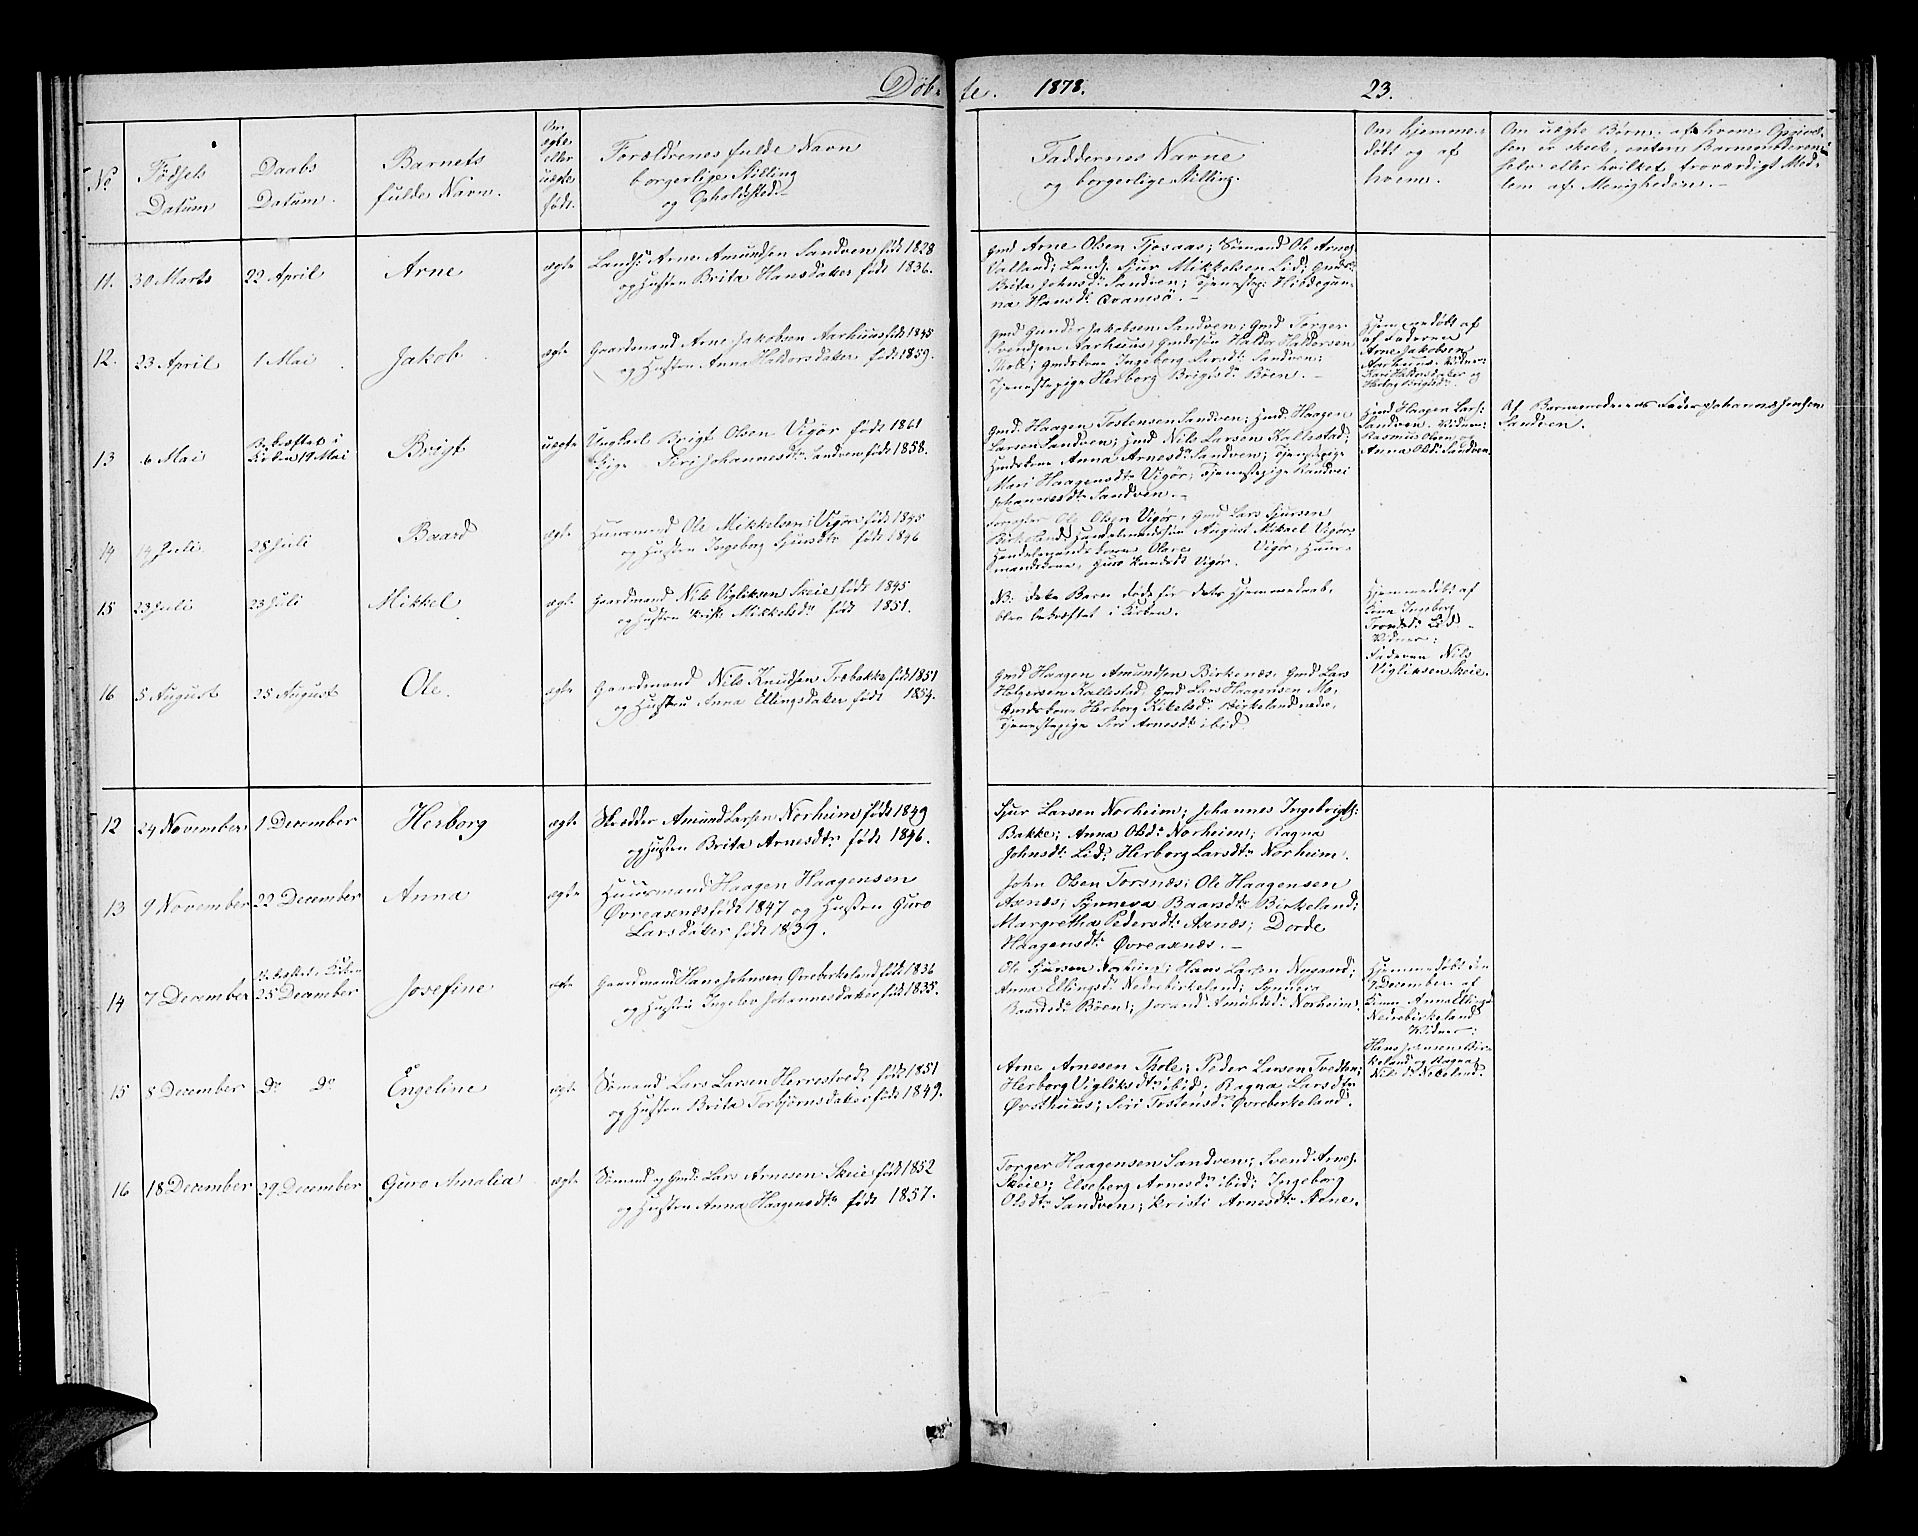 Døb-te. 1878. 23.
No
Fødsels Datum
Daabs Datum.
Barnets fulde Navn.
Om ægte eller uægte født.
Forældrenes fulde Navn
borgerlige Stilling
og Opholdsted.
Faddernes Navne
og borgerlige Stilling.
Om hjemme-
døbt og af
hvem.
Om uægte Børn: af hvem Opgivel-
sen er skeet, enten Barnemoderen
selv eller hvilket troværdigt Med-
lem af Menigheden.
11. 30 Marts 22 April Arne ægte
Lands. Arne Amundsen Sandven født 1828
og Hustru Brita Hansdatter født 1836.
Gmd Arne Olsen Tjosaas; Sømand Ole Arnes.
Valland; Lands. Sjur Mikkelsen Lid; Gmds.
Brita Johnsdr Sandven; Tjenestep. Hildegun-
na Hansdr Qvamsø.
12. 23 April 1 Mai Jakob ægte
Gaardmand Arne Jakobsen Aarhuus født 1845
og Hustru Anna Haldorsdatter født 1859.
Gmd Gunder Jakobsen Sandven; Gmd Torger
Svendsen Aarhuus; Gmdssøn Haldor Haldorsen
Thole; Gmdskone Ingeborg Svendsdr Sandven;
Tjenestepige Herborg Brigtsdr Bøen.
Hjemmedøbt af
af Faderen
Arne Jakobsen
Aarhuus. Vidner:
Kari Haldorsdatter og
Herborg Brigtsdr.
13 6 Mai Bekræftet i
Kirken 19 Mai Brigt uægte
Ungkarl Brigt Olsen Vigør født 1861
Pige Siri Johannesdr Sandven født 1858.
Gmd. Haagen Tostensen Sandven; Gmd. Haagen
Larsen Sandven; Gmd Nils Larsen Kallestad;
Gmdskone Anna Arnesdr Sandven; Tjenestepige
Mari Haagensdtr Vigør; Tjenestepige Randvei
Johannesdtr Sandven.
Gmd Haagen Lars.
Sandven. Vidner:
Rasmus Olsen og
Anna Olsdr Sandven.
Af Barnemoderens Fader Johannes Jensen
Sandven.
14 14 Juli 28 Juli Baard ægte
Huusmand Ole Mikkelsen Vigør født 1845
og Hustru Ingeborg Sjursdtr født 1846
Ole Olsen Vigør, Gmd Lars Sjursen
Birkeland, Handelsmandssøn August Mikael Vigør,
Handelsmandskone Olave Vigør, Huus-
mandskone, Guro Knudsdt Vigør.
15 23 Juli 23 Juli Mikkel ægte
Gaardmand Nils Vigliksen Skeie født 1845
og Hustru Krist. Mikkelsdr født 1851.
NB: dette Barn døde før dets Hjemmedaab,
blev bekræftet i Kirken.
Hjemmedøbt af
Kone Ingeborg
Trondsdr Lid
Vidner:
Faderen Nils
Vigliksen Skeie.
16 5 August 25 August Ole. ægte
Gaardmand Nils Knudsen Træbakke født 1851
og Hustru Anna Ellingsdatter født 1854.
Gmd Haagen Amundsen Birkenes. Gmd Lars
Holgersen Kallestad, Gmd Lars Haagensen Mo,
Gmdskone Herborg Birkeland nedre,
Tjenestepige Siri Arnesdtr ibid.
12 24 November 1 December Herborg ægte
Skredder Amund Larsen Norheim født 1849
og Hustru Brita Arnesdtr født 1846.
Sjur Larsen Norheim; Johannes Ingebrigts.
Bakke; Anna Olsdr Norheim; Ragna
Johnsdtr Lid; Herborg Larsdtr Norheim.
13 9 November 22 December Anna ægte
Huusmand Haagen Haagensen
Øvreaxnæs født 1847 og Hustru Guro
Larsdatter født 1839.
John Olsen Torsnæs; Ole Haagensen
Axnæs; Synneva Baarsdtr Birkeland;
Margretha Pedersdtr Axnæs; Dorde
Haagensdtr Øvreaxnæs.
14 7 December Bekræftet i Kirken
25 December Josefine ægte
Gaardmand Hans Johnsen Øvrebirkeland født 1836
og Hustru Ingebor Johannesdatter født 1835.
Ole Sjursen Norheim; Hans Larsen Nygaard;
Anna Ellingsdr Nedrebirkeland; Synneva
Baardsdr Bøen; Jorand Amundsdr Norheim.
Hjemmedøbt den
7 December af
Kone Anna Ellingsd
Nedrebirkeland
Vidner:
Hans Johnsen Bir-
keland og Ragna
Nilsdr Neteland.
15 8 December Do Do Engeline ægte
Sømand Lars Larsen Herrestvedt født 1851
og Hustru Brita Torbjørnsdatter født 1849.
Arne Arnesen Thole; Peder Larsen Tvedten;
Herborg Vigliksdtr ibid; Ragna Larsdtr
Øvsthuus; Siri Tostensdr Øvrebirkeland.
16 18 December 29 December Guro Amalia ægte
Sømand og Gmd: Lars Arnesen Skeie født 1852
og Hustru Anna Haagensdtr født 1857.
Torger Haagensen Sandven; Svend Arnes.
Skeie; Elseberg Arnesdtr ibid; Ingeborg
Olsdtr Sandven; Kristi Arnesdtr Aene.